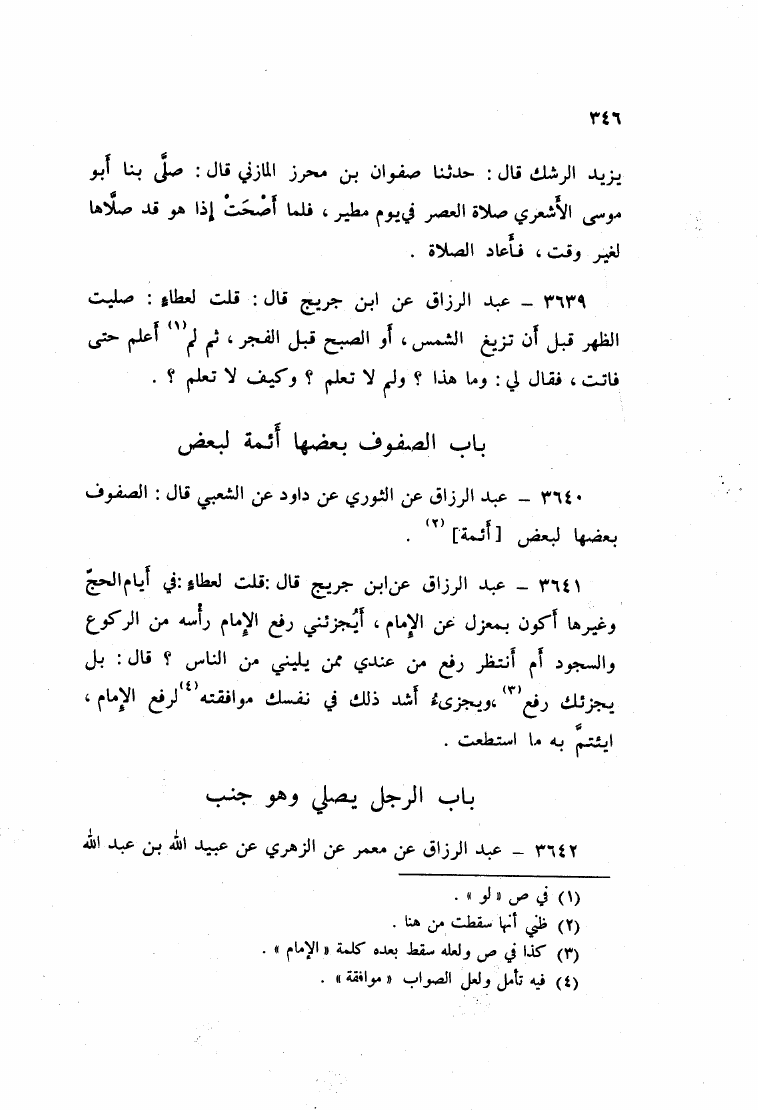 ٣٤٦
يزيد الرشك قال : حدثنا صفوان بن محرز المازني قال : صلَّى بنا أَبو
موسى الأَشعري صلاة العصر في يوم مطير ، فلما أَصْحَتْ إذا هو قد صلَّاها
لغير وقت ، فأَعاد الصلاة .
٣٦٣٩ – عبد الرزاق عن ابن جريج قال : قلت لعطاءٍ : صليت
الظهر قبل أَن تزيغ الشمس ، أَو الصبح قبل الفجر ، ثم لم(١) أَعلم حتى
فاتت ، فقال لي : وما هذا ؟ ولم لا تعلم ؟ وكيف لا تعلم ؟ .
باب الصفوف بعضها أَئمة لبعض
٣٦٤٠ – عبد الرزاق عن الثوري عن داود عن الشعبي قال : الصفوف
بعضها لبعض [ أَئمة] (٢) .
٣٦٤١ – عبد الرزاق عن ابن جريج قال :قلت لعطاءٍ :في أَيام الحجّ
وغيرها أَكون بمعزل عن الإِمام ، أَيُجزئني رفع الإِمام رأْسه من الركوع
والسجود أَم أَنتظر رفع من عندي ممن يليني من الناس ؟ قال : بل
يجزئك رفع(٣) ،ويجزىءُ أَشد ذلك في نفسك موافقته(٤)لرفع الإِمام ،
ايئتمَّ به ما استطعت .
باب الرجل يصلي وهو جنب
٣٦٤٢ – عبد الرزاق عن معمر عن الزهري عن عبيد الله بن عبد الله
(١) في ص « لو » .
(٢) ظني أنها سقطت من هنا .
(٣) كذا في ص ولعله سقط بعده كلمة « الإمام » .
(٤) فيه تأمل ولعل الصواب « موافقة » .